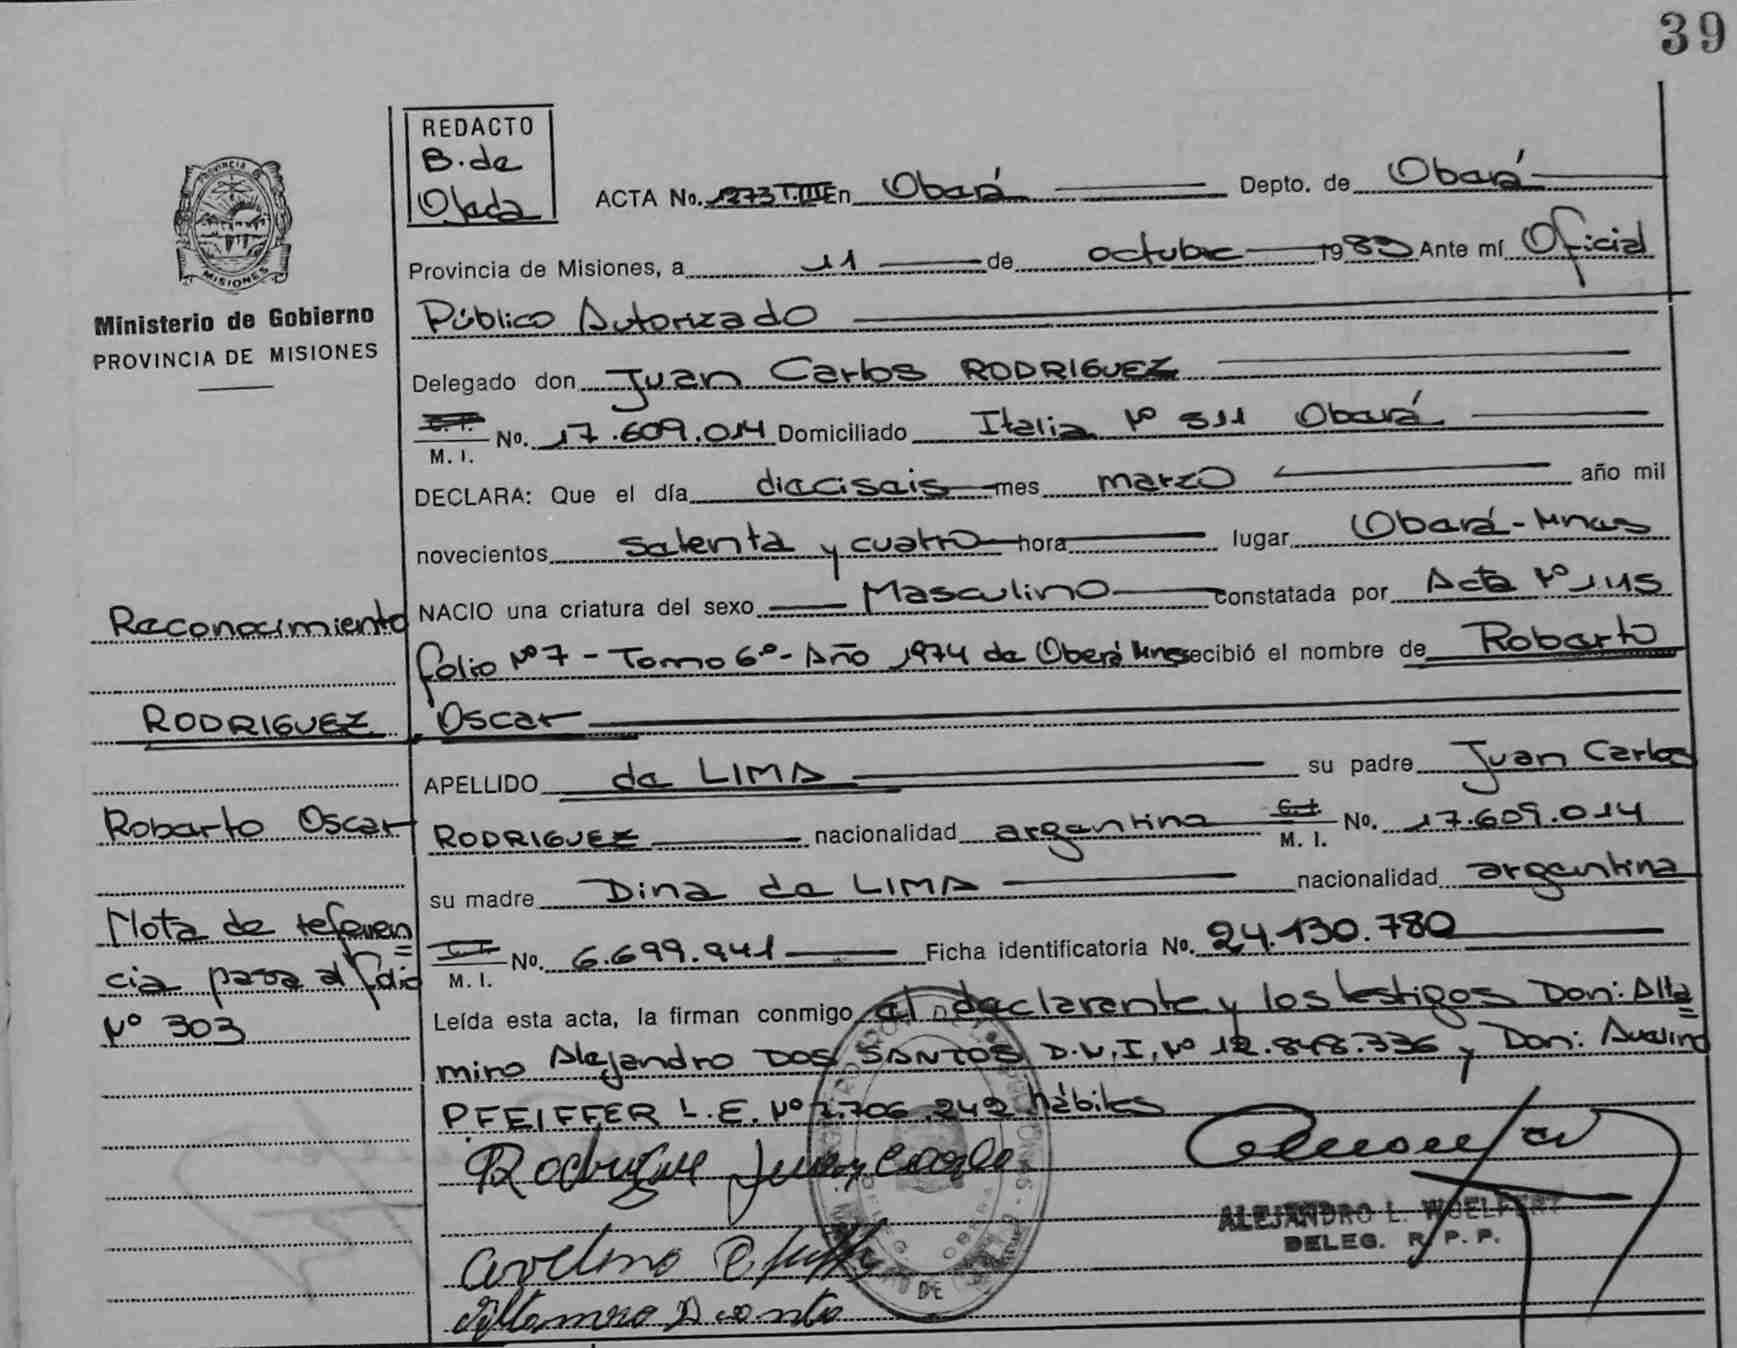 39
REDACTO
B. de
Ojeda
PROVINCIA
MISIONES
Ministerio de Gobierno
PROVINCIA DE MISIONES
ACTA No. 1273 T.III En Oberá Depto. de Oberá
Provincia de Misiones, a 11 de octubre 1989 Ante mí Oficial
Público Autorizado
Delegado don Juan Carlos RODRIGUEZ
C. I. M. I. No. 17.609.014 Domiciliado Italia Nº 811 Oberá
DECLARA: Que el día dieciseis mes marzo año mil
novecientos setenta y cuatro hora lugar Oberá-Mnes
NACIO una criatura del sexo Masculino constatada por Acta Nº 1.115
folio Nº 7 - Tomo 6º - Año 1974 de Oberá Mnes recibió el nombre de Roberto
Oscar
APELLIDO de LIMA su padre Juan Carlos
RODRIGUEZ nacionalidad argentina C. I. M. I. No. 17.609.014
su madre Dina de LIMA nacionalidad argentina
C. I. M. I. No. 6.699.941 Ficha identificatoria No. 24.130.780
Leída esta acta, la firman conmigo el declarante y los testigos Don: Alta
miro Alejandro DOS SANTOS D.N.I. Nº 12.848.336 y Don: Avelino
PFEIFFER L.E. Nº 7.706.242 hábiles
Reconocimiento
RODRIGUEZ
Roberto Oscar
Nota de referen
cia pasa al folio
Nº 303
Rodrigue Juan Carlo
ALEJANDRO L. WOELFERT
DELEG. R. P. P.